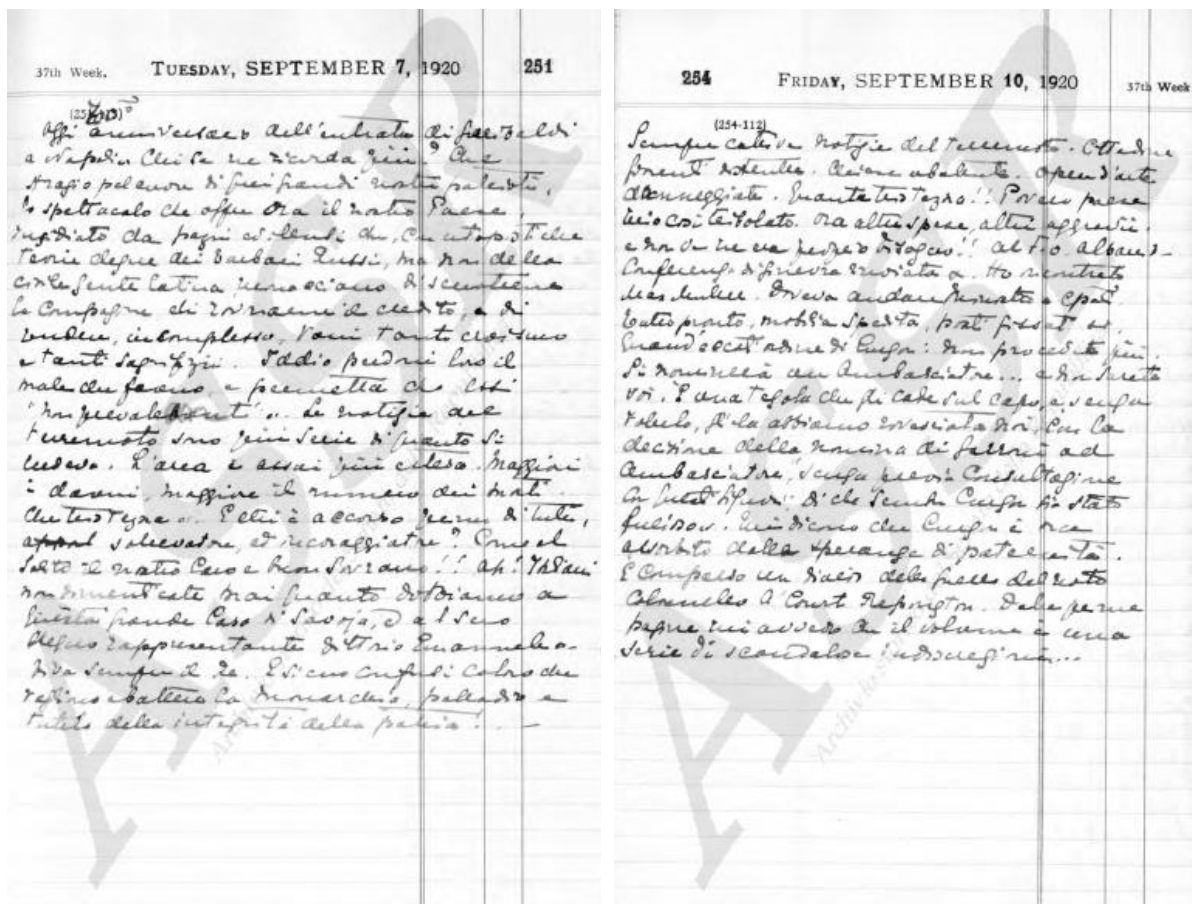 37th Week. TUESDAY, SEPTEMBER 7, 1920 251
Oggi anniversario dell'entrata di Garibaldi
a Napoli. Chi se ne ricorda più? Che
strazio pel cuore di quei grandi nostri patrioti,
lo spettacolo che offre ora il nostro Paese,
insidiato da pazzi violenti che, con utopistiche
teorie degne dei barbari Russi, ma non della
civile gente latina
la compagine, di rovinarne il credito, e di
rendere, in complesso, vani tanto eroismo
e tanti sagrifizii. Iddio perdoni loro il
male che fanno e permetta che essi
"non prevalebunt". Le notizie del
terremoto sono più serie di quanto si
credeva. L'area è assai più estesa. Maggiori
i danni, maggiore il numero dei morti.
Che tristezza E chi è accorso primo di tutti,
sollevatore, ed incoraggiatore? Come al
solito il nostro caro e buon Sovrano!! Ah! Italiani
non dimenticate mai quanto dobbiamo a
questa grande Casa di Savoja, e al suo
degno rappresentante Vittorio Emanuele
Viva sempre il Re. E siano confusi coloro che
abbattere la monarchia, palladio e
tutela della integrità della patria!
254 FRIDAY, SEPTEMBER 10, 1920 37th Week
(254-112)
Sempre cattive notizie del terremoto. Cittadine
fiorenti distrutte. Chiese abbattute. Opere d'arte
danneggiate. Quanta tristezza!! Povero paese
mio così desolato. Ora altre spese, altri aggravii
e non ve ne era proprio bisogno!! Al F.O.
Conferenza di Ginevra rinviata Ho incontrato
Doveva andare ministro a Cpoli.
Tutto pronto, mobilia spedita, posti fissati
Quando ecco l'ordine di Curzon: non procedete più.
Si nominerà un Ambasciatore... e non sarete
voi. È una tegola che gli cade sul capo, e senza
volerlo, gliela abbiamo rovesciata noi, con la
decisione della nomina di Garroni ad
Ambasciatore, senza previa consultazione
con questi Signori; di che sembra Curzon sia stato
furioso. Mi dicono che Curzon è ora
assorbito dalla speranza di paternità.
È comparso un diario della guerra del noto
Colonnello A'Court Repington. Dalle prime
pagine mi avvedo che il volume è una
serie di scandalose indiscrezioni...